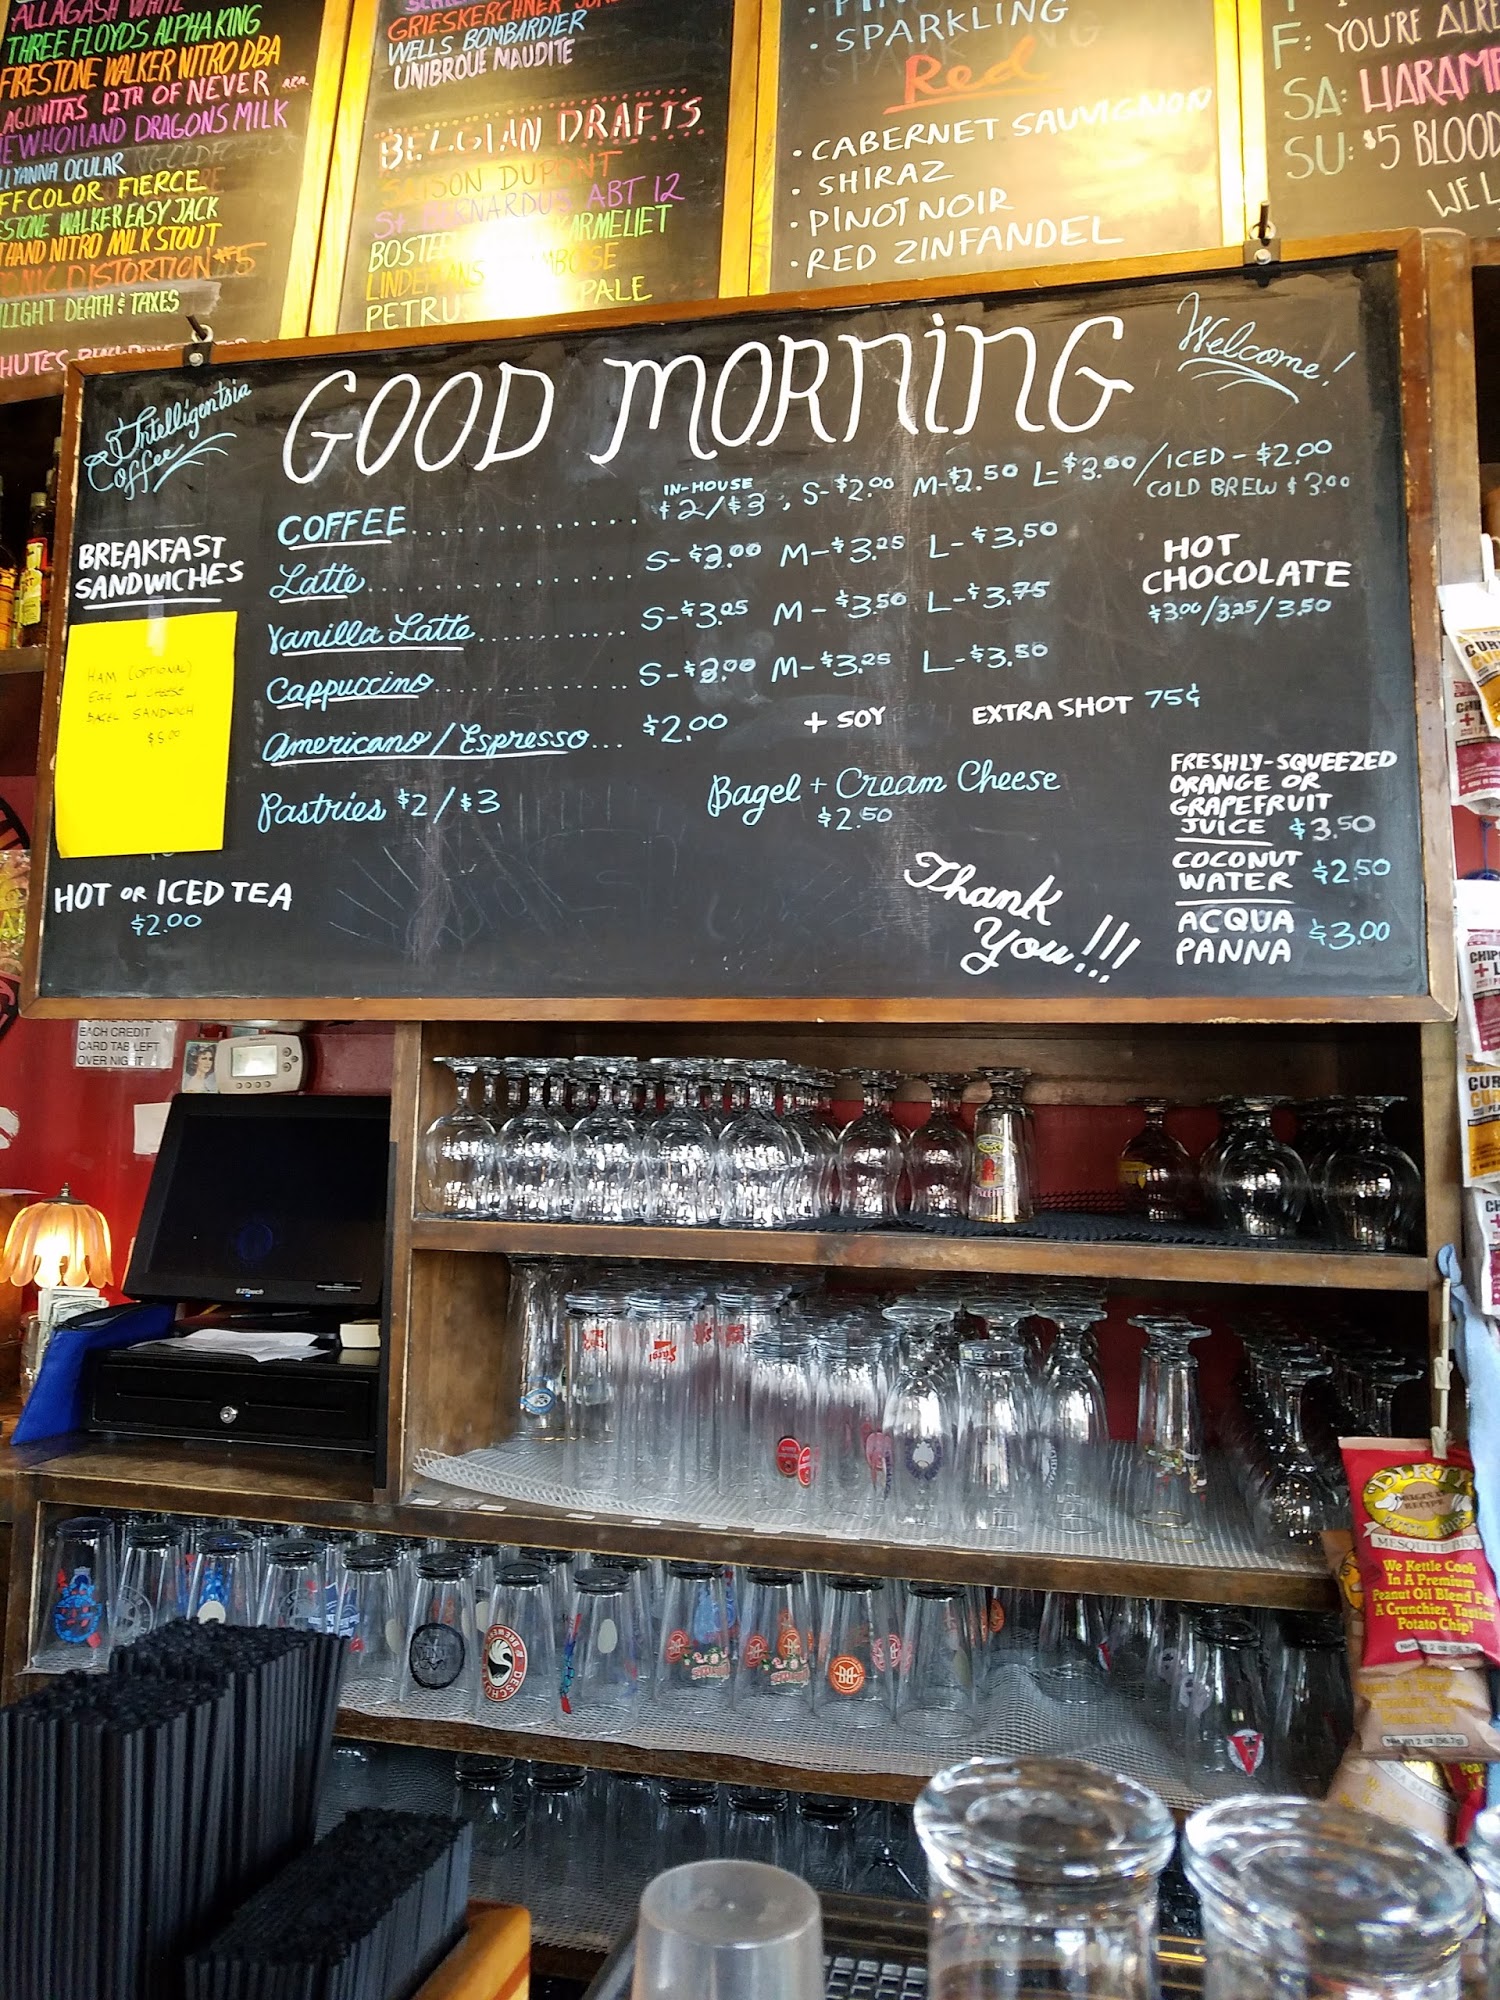 ALLAGASH WHITE
THREE FLOYDS ALPHA KING
FIRESTONE WALKER NITRO DBA
LAGUNITAS 12TH OF NEVER
DRAGONS MILK
OCULAR
FFCOLOR FIERCE
STONE WALKER EASY JACK
HAND NITRO MILK STOUT
DISTORTION $5
LIGHT DEATH & TAXES
HUTES
GRIESKERCHNER
WELLS BOMBARDIER
UNIBROUE MAUDITE
BELGIAN DRAFTS
SAISON DUPONT
ST. BERNARDUS ABT 12
BOSTEE ARMELIET
LINDEMANS
PETRUS PALE
• SPARKLING
Red
• CABERNET SAUVIGNON
• SHIRAZ
• PINOT NOIR
• RED ZINFANDEL
F: YOU'RE ALRE
SA: HARAMB
SU: $5 BLOOD
WEL
Intelligentsia
Coffee
GOOD MORNING
Welcome!
BREAKFAST
SANDWICHES
HAM (OPTIONAL)
EGG & CHEESE
BAGEL SANDWICH
$5.00
HOT OR ICED TEA
$2.00
IN-HOUSE
COFFEE............. $2/$3, S-$2.00 M-$2.50 L-$3.00/ICED-$2.00
COLD BREW $3.00
Latte................ S-$3.00 M-$3.25 L-$3.50
Vanilla Latte.......... S-$3.25 M-$3.50 L-$3.75
Cappuccino............. S-$3.00 M-$3.25 L-$3.50
Americano/Espresso... $2.00 + SOY EXTRA SHOT 75¢
Pastries $2/$3
Bagel + Cream Cheese
$2.50
HOT
CHOCOLATE
$3.00/3.25/3.50
FRESHLY-SQUEEZED
ORANGE OR
GRAPEFRUIT
JUICE $3.50
COCONUT
WATER $2.50
ACQUA
PANNA $3.00
Thank
You!!!
EACH CREDIT
CARD TAB LEFT
OVER NIGHT
EZTouch
DESCHUTES
BREWERY
DIRTY
MESQUITE BBQ
We Kettle Cook
In A Premium
Peanut Oil Blend For
A Crunchier, Tastier
Potato Chip!